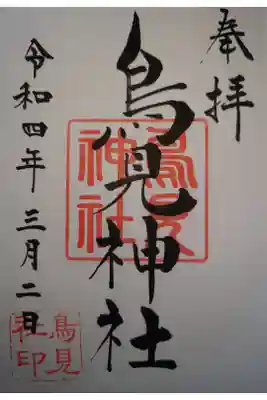 奉拝
鳥見神社
令和四年三月二日
鳥見
神社
鳥見
社印